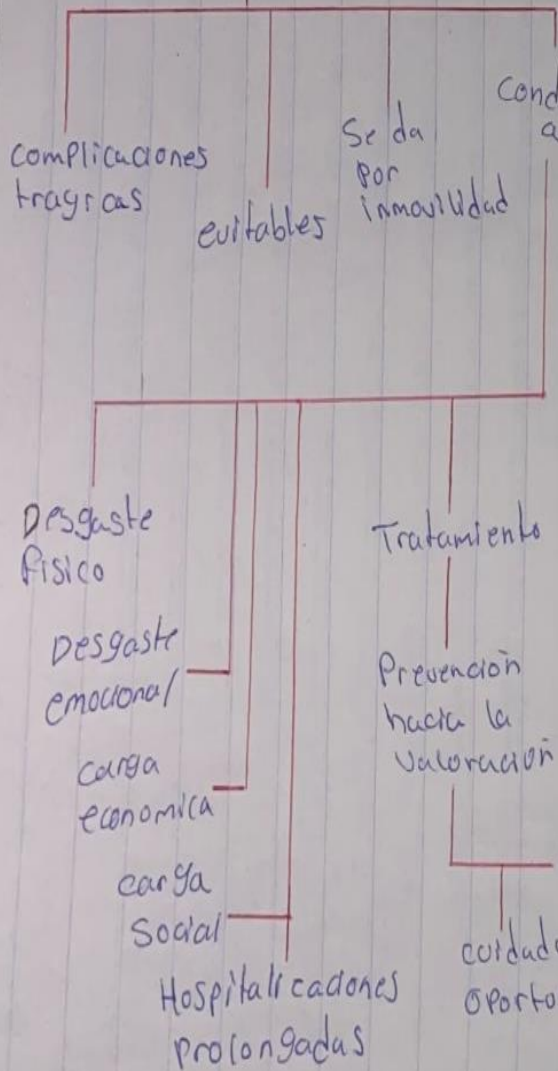 complicaciones
tragicas
evitables
Se da
por
inmovilidad
Desgaste
Fisico
Desgaste
emocional
carga
economica
carga
Social
Hospitalicaciones
prolongadas
Tratamiento
Prevención
hacia la
valoración